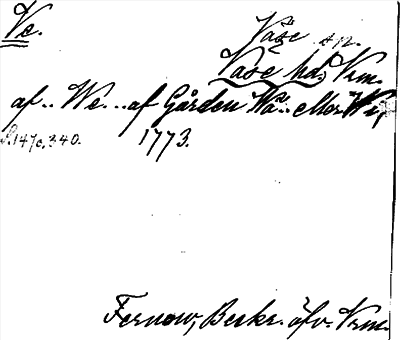 Ve. Väse sn.
Väse hd, Vrm.
af .. We... af Gården Wä.. eller We,
S. 1470, 340. 1773.
Fernow, Beskr. öfv. Vrm.